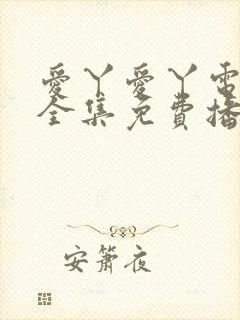 愛丫愛丫電
全集免費播
安簫夜